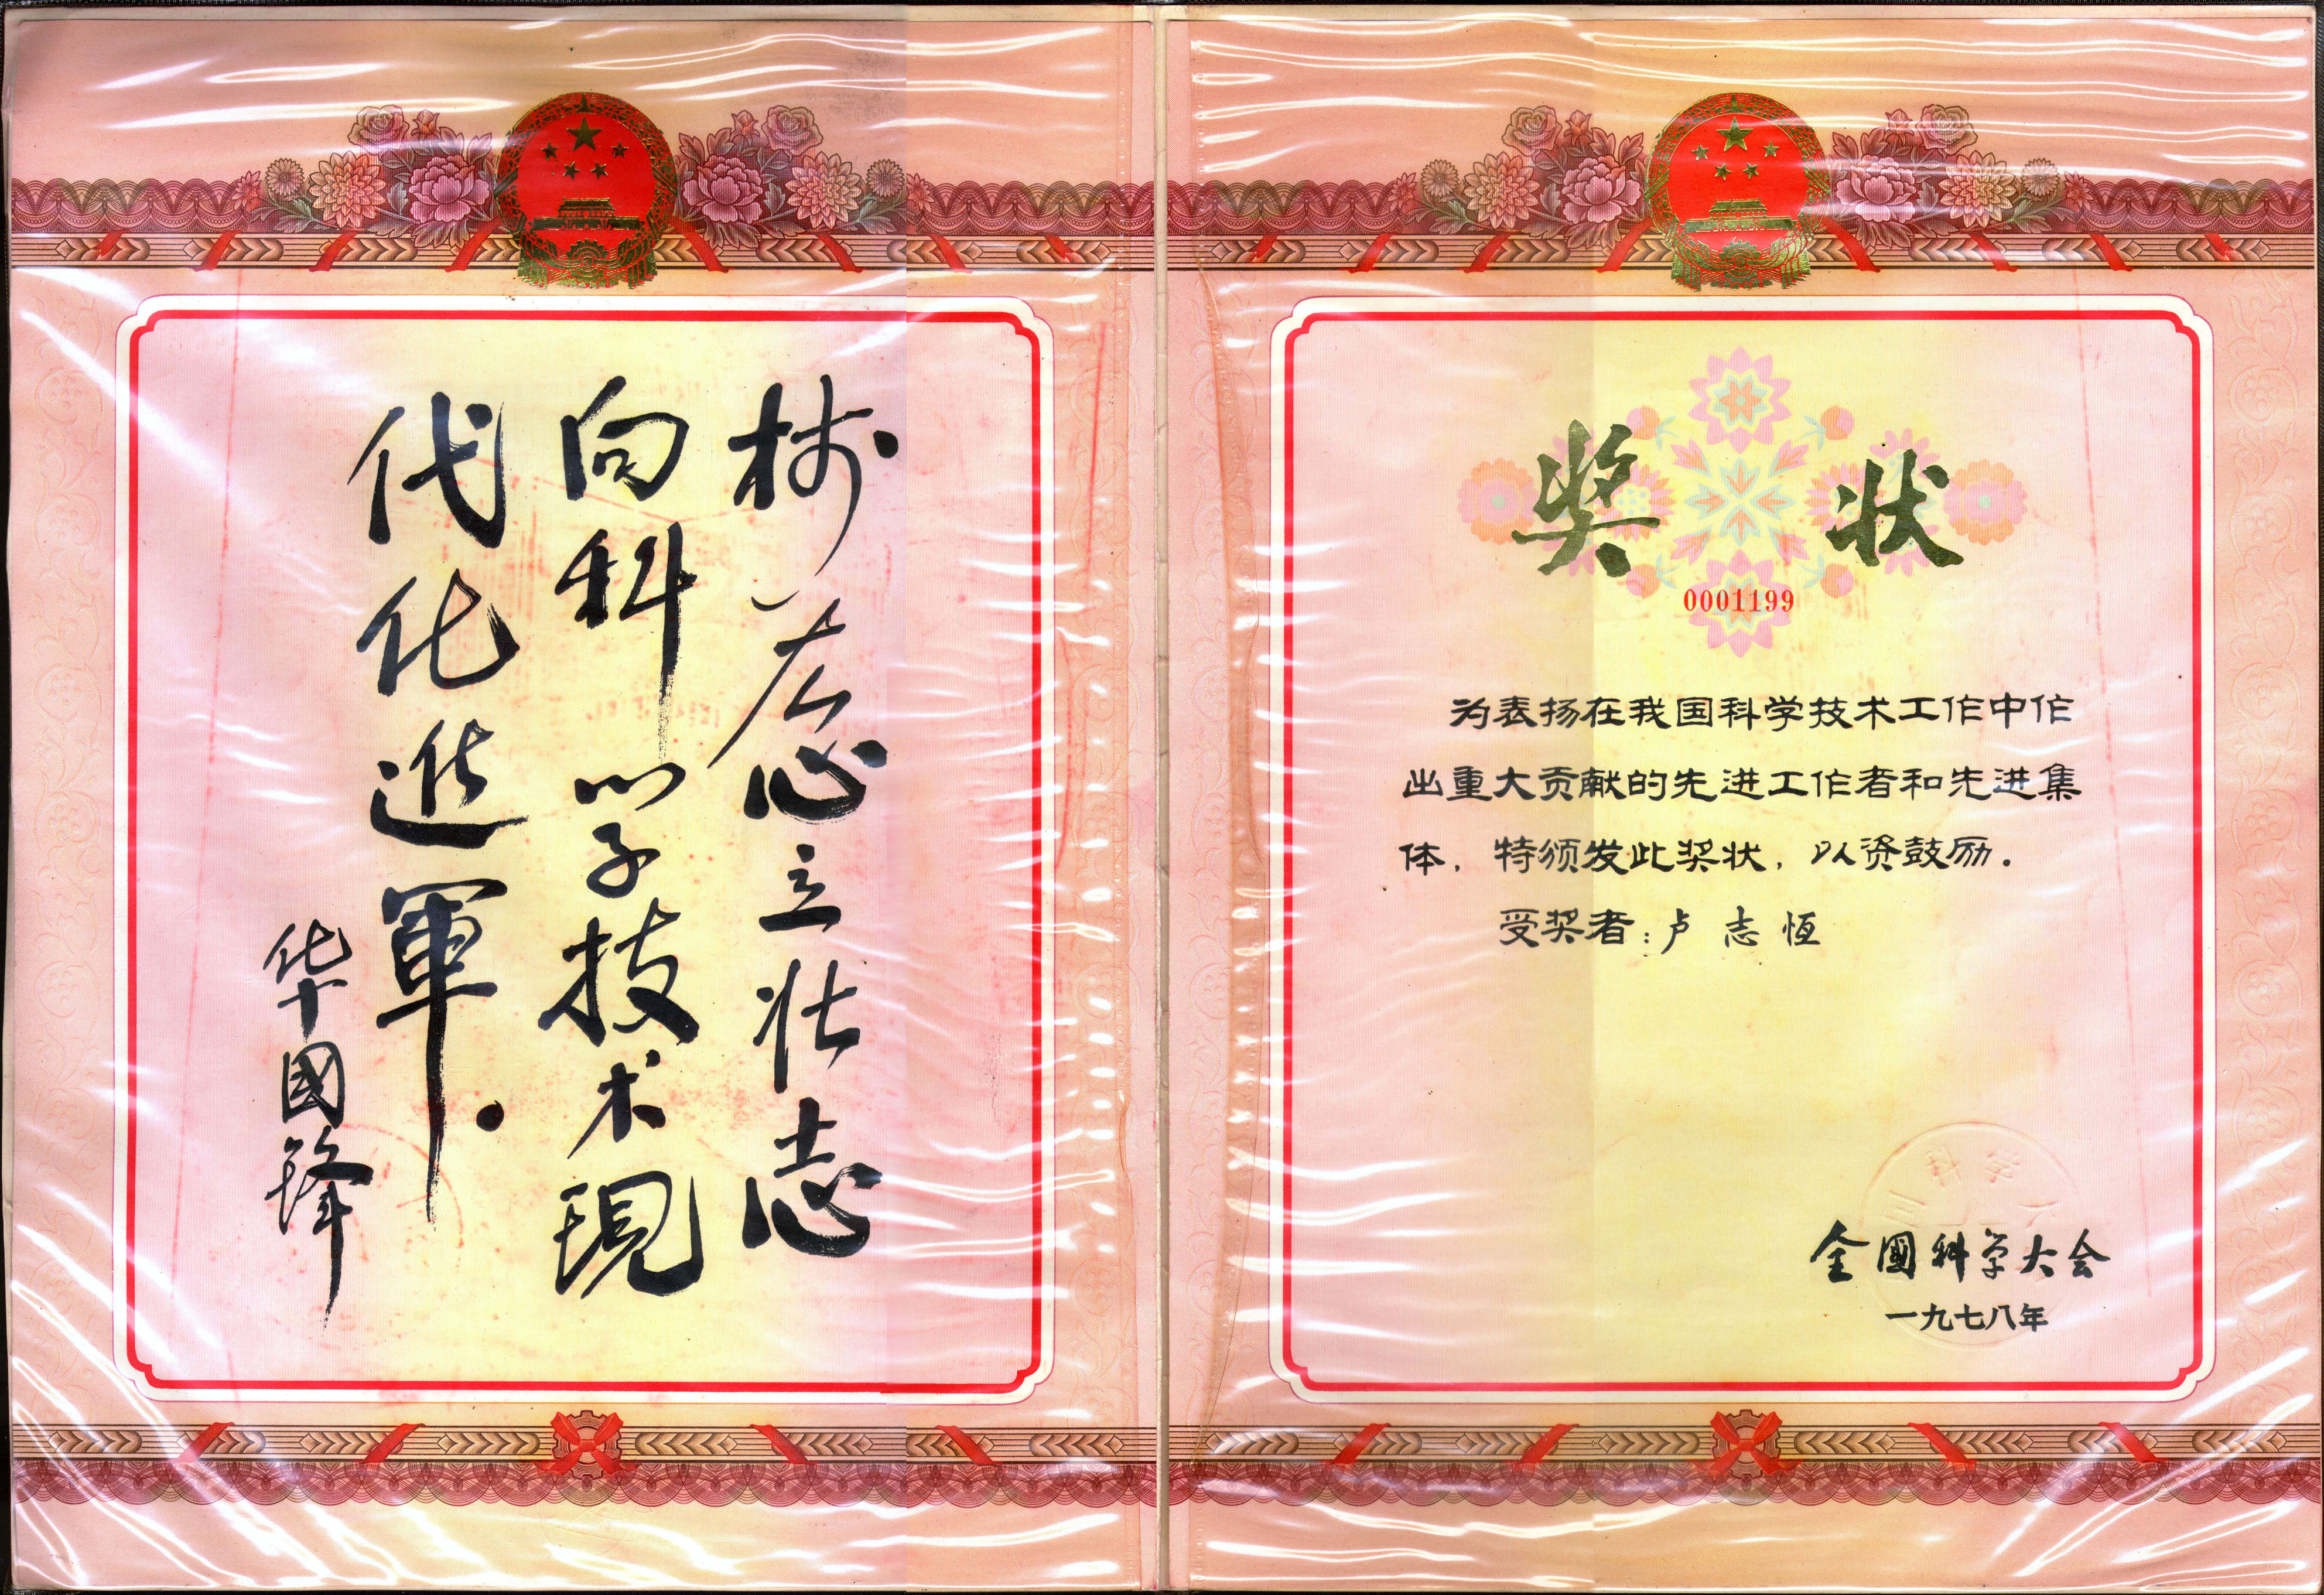 树雄心立壮志
向科学技术現
代化進軍.
华國锋
奖状
0001199
为表扬在我国科学技术工作中作
出重大贡献的先进工作者和先进集
体，特颁发此奖状，以资鼓励。
受奖者：卢志恒
全國科学大会
一九七八年